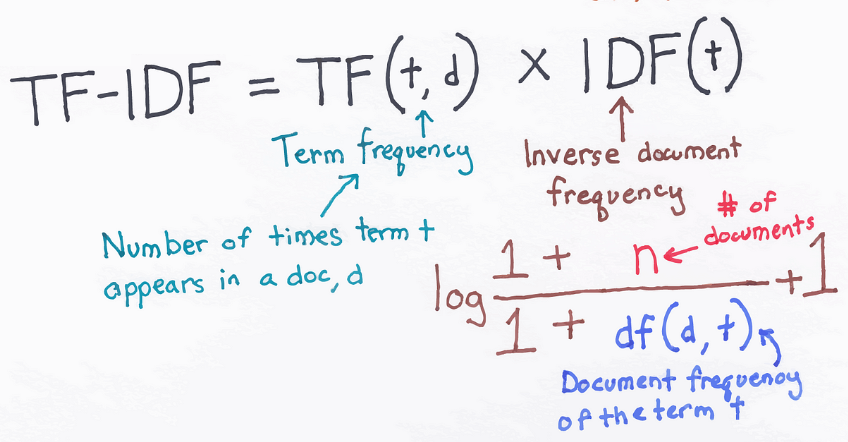 TF-IDF = TF(t, d) × IDF(t)
Term frequency
Inverse document
frequency
Number of times term t
appears in a doc, d
# of
documents
log (1 + n) / (1 + df(d, t)) + 1
Document frequency
of the term t